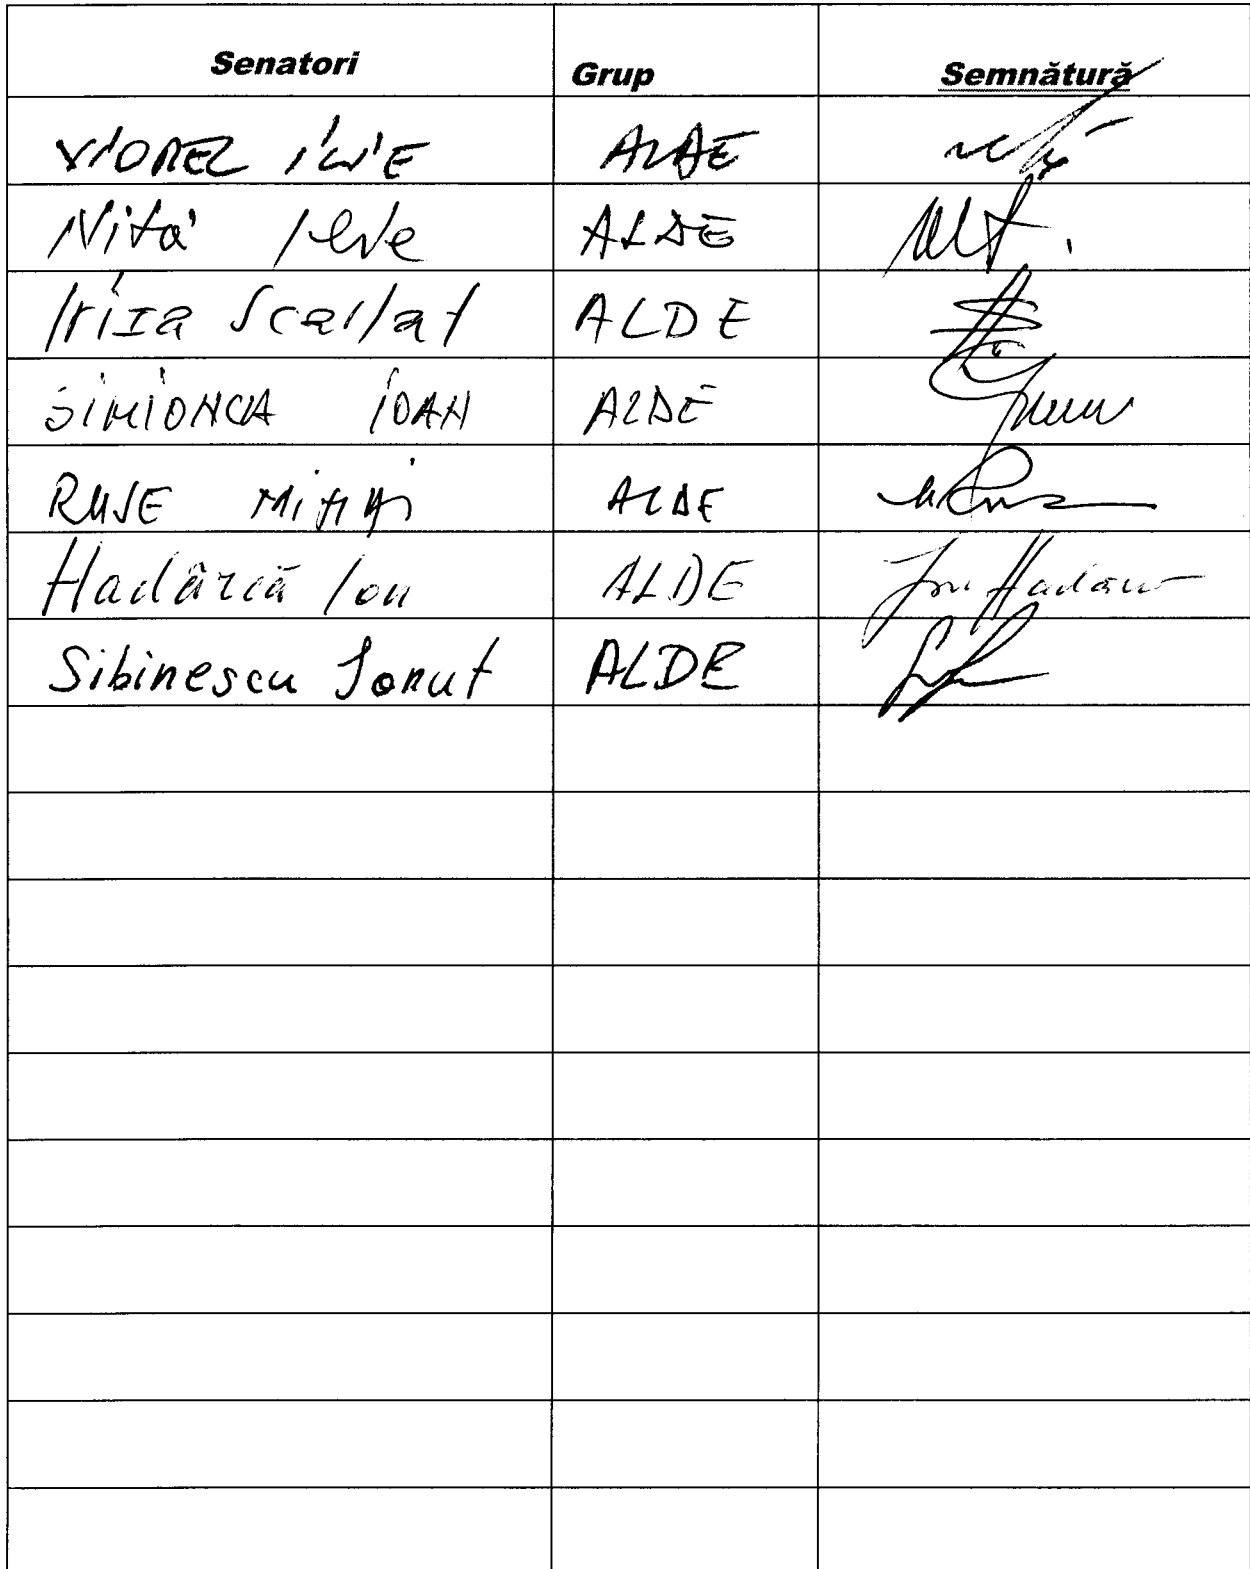 Senatori Grup Semnătură
VIOREL ILIE ALDE
Nita Ilie ALDE
Iriza Scarlat ALDE
SIMIONCA IOAN ALDE
RUSE MIHAI ALDE
Hadârcă Ion ALDE Ion Hadârcă
Sibinescu Ionut ALDE